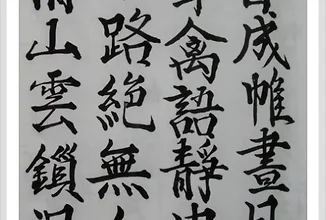 成帷晝
禽語靜
路絕無
山雲鎖